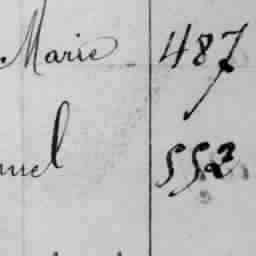 Marie 487
nuel 552